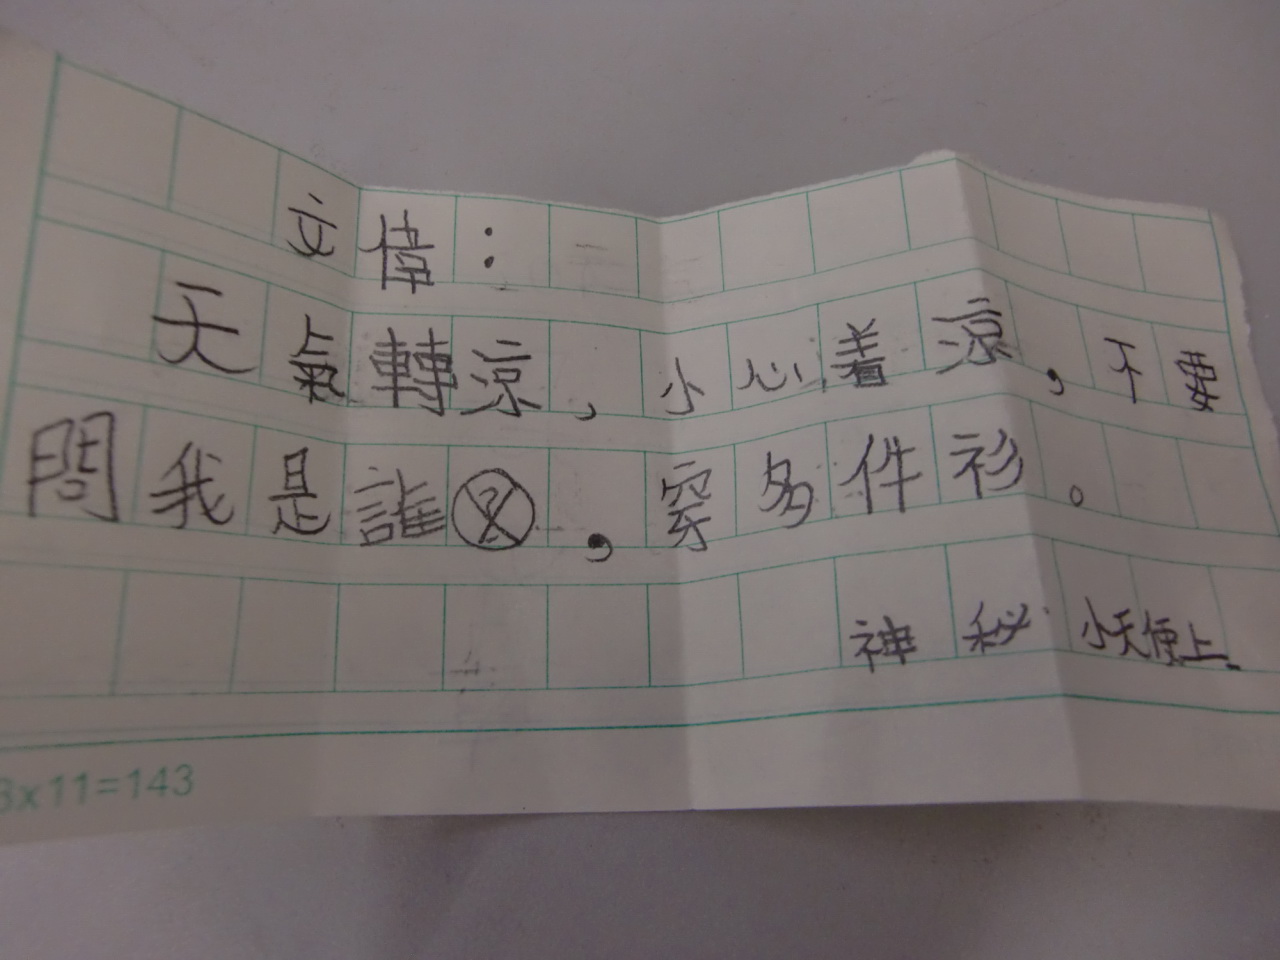 文偉：
天氣轉涼，小心着涼，不要
問我是誰，穿多件衫。
神秘小天使上
3x11=143